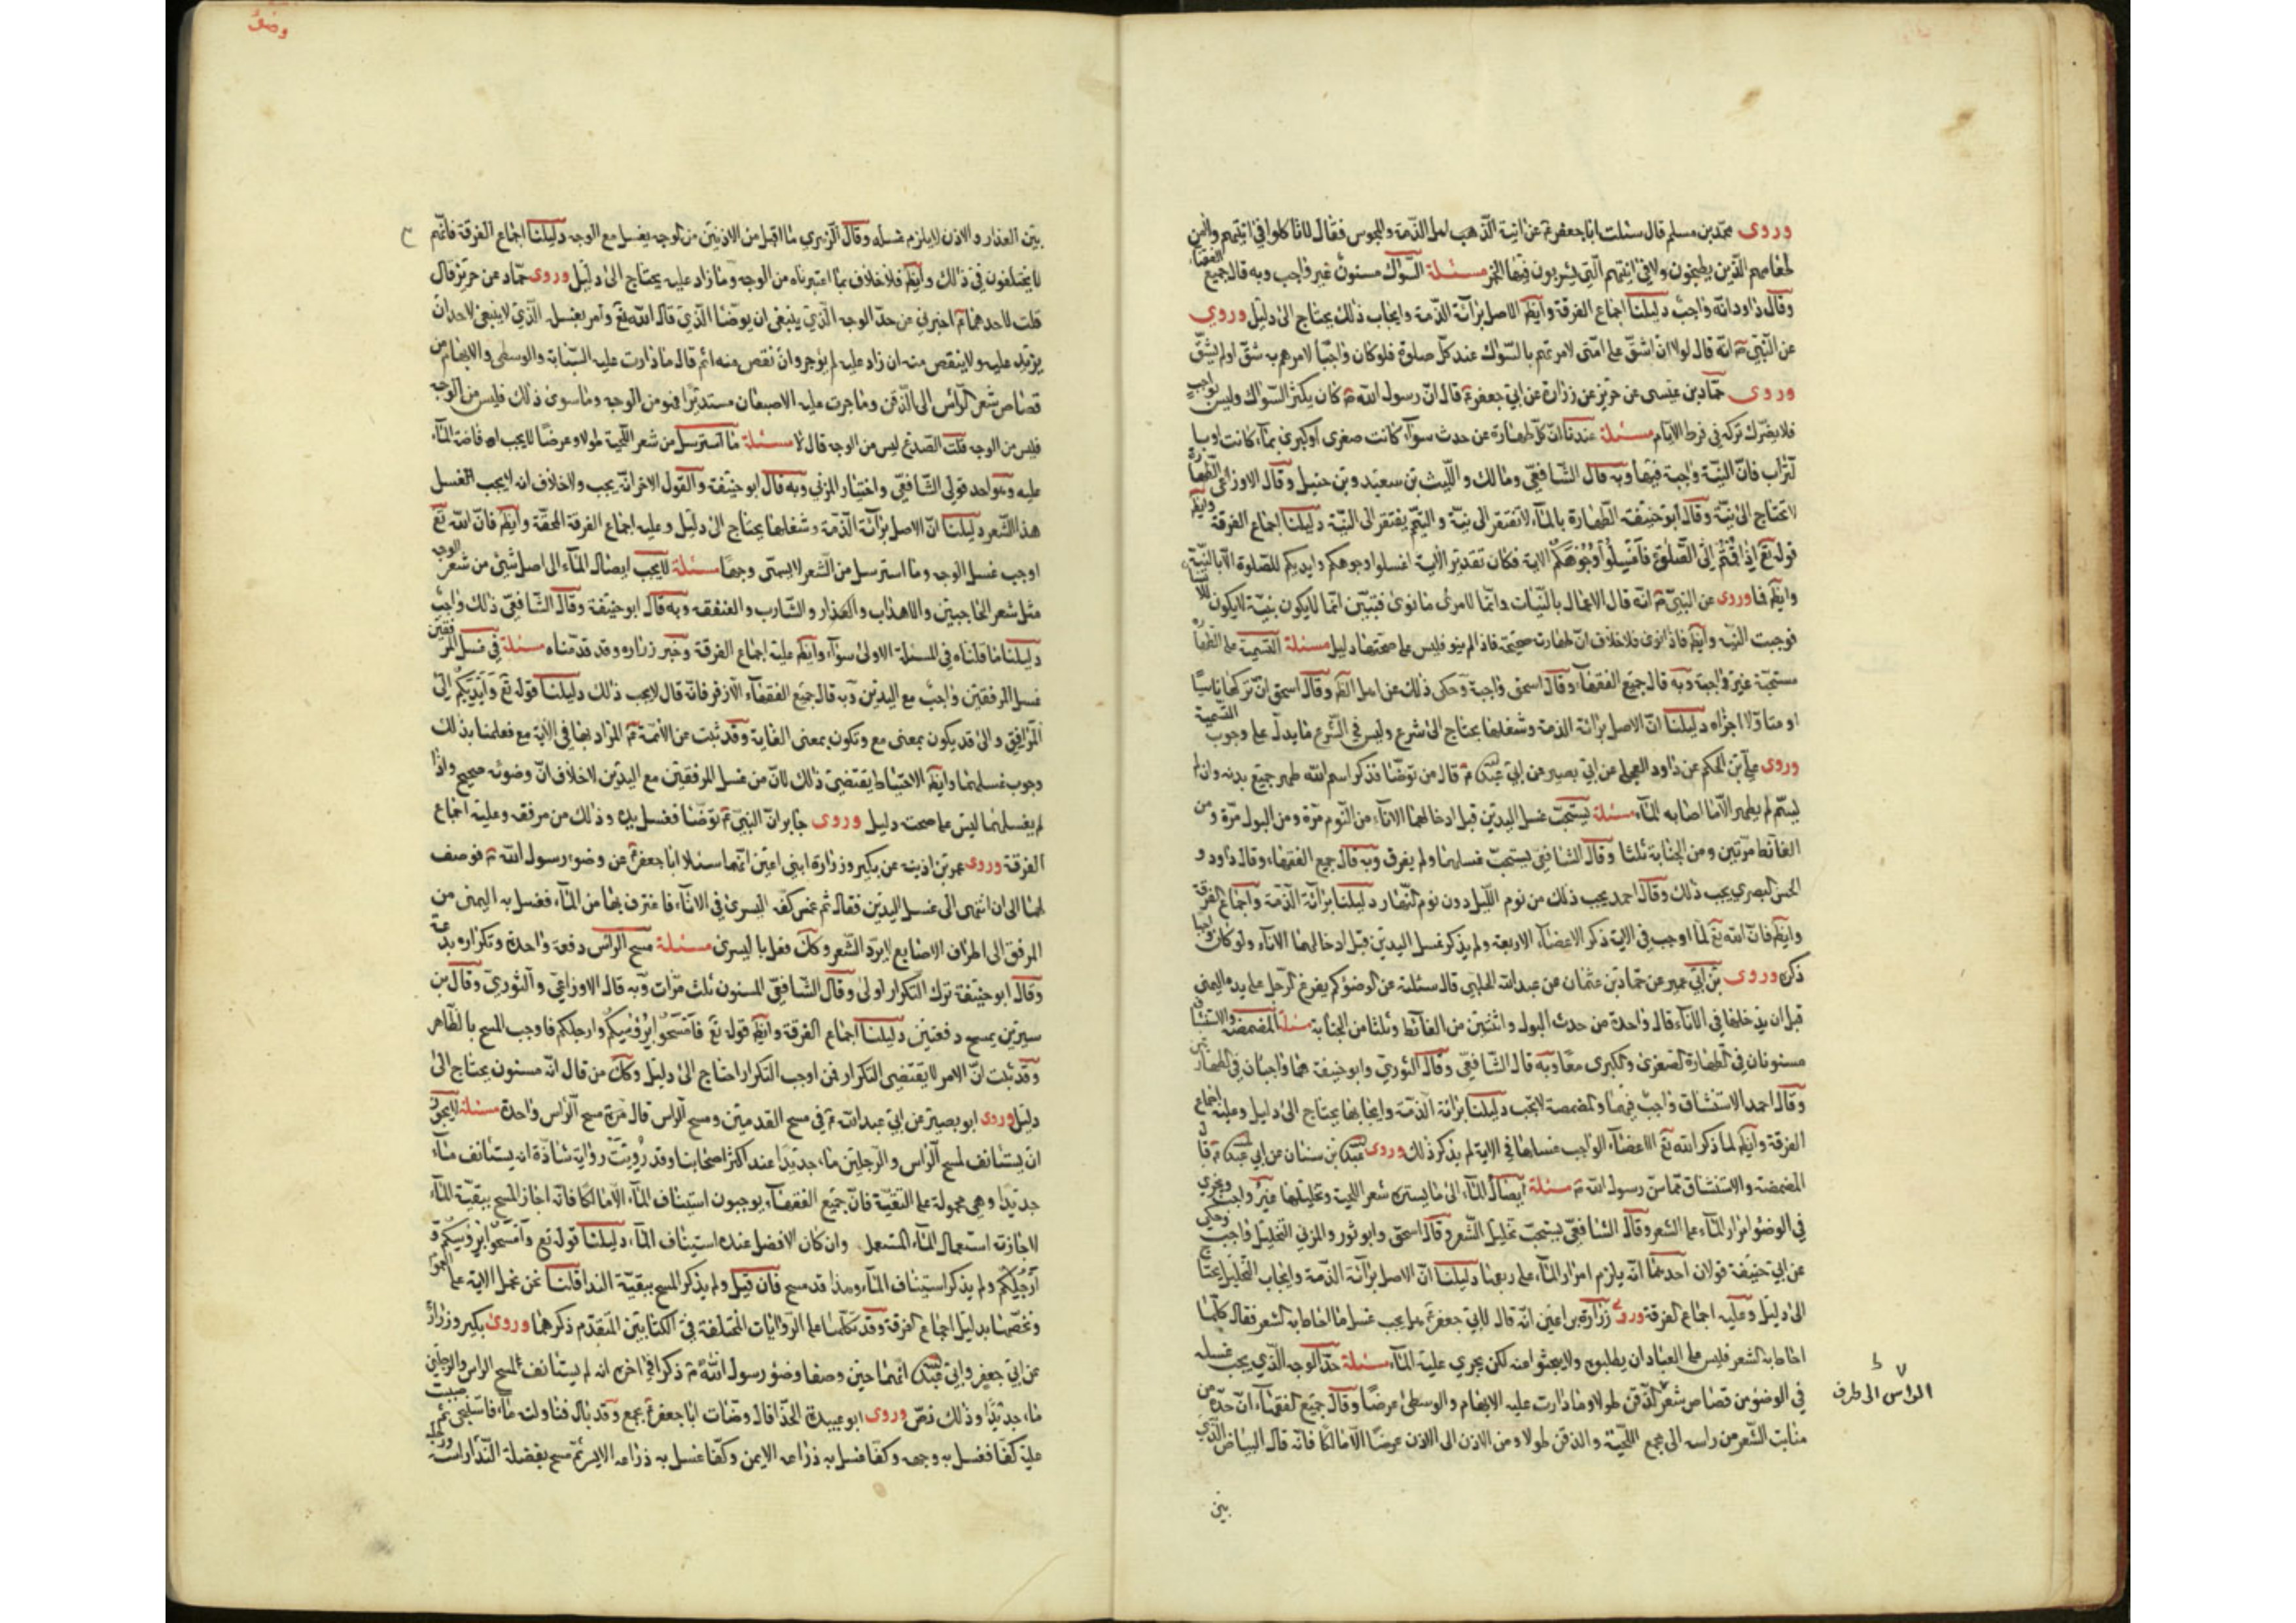 وروى محمد بن مسلم قال سئلت ابا جعفر ع عن انية الذهب اهل الذمة والمجوس فقال لا تاكلوا في انيتهم ولا من
طعامهم الذين يطبخون ولا في انيتهم التي يشربون فيها الخمر مسئلة السواك مسنون غير واجب وبه قال جميع الفقهاء
وقال داود انه واجب دليلنا اجماع الفرقة وايضا الاصل برآئة الذمة وايجاب ذلك يحتاج الى دليل وروي
عن النبي ص انه قال لولا ان اشق على امتى لامرتهم بالسواك عند كل صلوة فلو كان واجبا لامرهم به شق او لم يشق
وروى حماد بن عيسى عن حريز عن زرارة عن ابي جعفر ع قال ان رسول الله ص كان يكثر السواك وليس بواجب
فلا يضرك تركه في فرط الايام مسئلة عندنا ان كل طهارة عن حدث سوآء كانت صغرى او كبرى بمآء كانت او با
لتراب فان النية واجبة فيها وبه قال الشافعي ومالك والليث بن سعيد وبن حنبل وقال الاوزاعي الطهارة
لا تحتاج الى نية وقال ابو حنيفة الطهارة بالمآء لا تفتقر الى نية والتيمم يفتقر الى النية دليلنا اجماع الفرقة وايضا
قوله تع اذا قمتم الى الصلوة فاغسلوا وجوهكم الاية فكان تقدير الاية اغسلوا وجوهكم وايديكم للصلوة الا بالنية
وايضا فما وروى عن النبي ص انه قال الاعمال بالنيات وانما لامرئ ما نوى فتبين انما لا يكون بنية لا يكون
فوجبت النية وايضا فاذا نوى فلا خلاف ان طهارته صحيحة فاذا لم ينو فليس على صحتها دليل مسئلة التسمية على الطهارة
مستحبة غير واجبة وبه قال جميع الفقهآء وقال اسحق واجبة وحكى ذلك عن اهل الظاهر وقال اسحق ان تركها ناسيا
او متاولا اجزاه دليلنا ان الاصل برائة الذمة وشغلها يحتاج الى شرع وليس في الشرع ما يدل على وجوب التسمية
وروى علي بن الحكم عن داود العجلي عن ابي بصير عن ابي عبد الله ع قال من توضا فذكر اسم الله طهر جميع بدنه وان لم
يسم لم يطهر الا ما اصابه المآء مسئلة يستحب غسل اليدين قبل ادخالهما الانآء من النوم مرة ومن البول مرة ومن
الغائط مرتين ومن الجنابة ثلثا وقال الشافعي يستحب غسلهما ولم يفرق وبه قال جميع الفقهاء وقال داود و
الحسن البصري يجب ذلك وقال احمد يجب ذلك من نوم الليل دون نوم النهار دليلنا برآئة الذمة واجماع الفرقة
وايضا فان الله تع لما اوجب في الاية ذكر الاعضآء الاربعة ولم يذكر غسل اليدين قبل ادخالهما الانآء ولو كان واجبا
ذكره وروى بن ابي عمير عن حماد بن عثمان عن عبد الله الحلبي قال سئلته عن الوضو كم يفرغ الرجل على يده اليمنى
قبل ان يدخلها في الانآء قال واحدة من حدث البول واثنتين من الغائط وثلثا من الجنابة مسئلة المضمضة والاستنشاق
مسنونان في الطهارة الصغرى والكبرى معا وبه قال الشافعي وقال الثوري وابو حنيفة هما واجبان في الطهارة
وقال احمد الاستنشاق واجب فيهما والمضمضة لا تجب دليلنا برائة الذمة وايجابها يحتاج الى دليل وعليه اجماع
الفرقة وايضا لما ذكر الله تع الاعضآء الواجب غسلها في الاية لم يذكر ذلك وروى عبد الله بن سنان عن ابي عبد الله ع قا ل
المضمضة والاستنشاق مما سن رسول الله ص مسئلة ايصال المآء الى ما يستره شعر اللحية وتخليلها غير واجب ويجزي
في الوضو امرار المآء على الشعر وقال الشافعي يستحب تخليل الشعر وقال اسحق وابو ثور والمزني التخليل واجب وحكى
عن ابي حنيفة قولان احدهما انه يلزم امرار المآء على ربعها دليلنا ان الاصل برآئة الذمة وايجاب التخليل يحتاج
الى دليل وعليه اجماع الفرقة وروى زرارة بن اعين انه قال لابي جعفر ع هل يجب غسل ما احاط به الشعر فقال كلما
احاط به الشعر فليس على العباد ان يطلبوه ولا يبحثوا عنه لكن يجري عليه المآء مسئلة حد الوجه الذي يجب غسله
في الوضو من قصاص شعر الذقن طولا وما دارت عليه الابهام والوسطى عرضا وقال جميع الفقهآء ان حده من
منابت الشعر من راسه الى مجمع اللحية والذقن طولا ومن الاذن الى الاذن عرضا الا مالكا فانه قال البياض الذي
بين
الراس الى طرف
وضوء
بين العذار والاذن لا يلزم غسله وقال الزهري ما اقبل من الاذنين من الوجه يغسل مع الوجه دليلنا اجماع الفرقة فانهم
لا يختلفون في ذلك وايضا فلا خلاف بما اعتبرناه من الوجه وما زاد عليه يحتاج الى دليل وروى حماد عن حريز قال
قلت لاحدهما ع اخبرني عن حد الوجه الذي ينبغى ان يوضا الذي قال الله تع وآمر بغسل الذي لا ينبغى لاحد ان
يزيد عليه ولا ينقص منه ان زاد عليه لم يؤجر وان نقص منه اثم قال ما دارت عليه السبابة والوسطى والابهام من
قصاص شعر الرأس الى الذقن وما جرت عليه الاصبعان مستديرا فهو من الوجه وما سوى ذلك فليس من الوجه
فليس من الوجه قلت الصدغ ليس من الوجه قال لا مسئلة ما استرسل من شعر اللحية طولا وعرضا لا يجب افاضة المآء
عليه وهو احد قولى الشافعي واختيار المزني وبه قال ابو حنيفة والقول الاخر انه يجب ولا خلاف انه لا يجب الغسل
هذا الشعر دليلنا ان الاصل برآئة الذمة وشغلها يحتاج الى دليل وعليه اجماع الفرقة المحقة وايضا فان الله تع
اوجب غسل الوجه وما استرسل من الشعر لا يسمى وجها مسئلة لا يجب ايصال المآء الى اصل شيئ من شعر الوجه
مثل شعر الحاجبين والاهداب والعذار والشارب والعنفقه وبه قال ابو حنيفة وقال الشافعي ذلك واجب
دليلنا ما قلناه في المسئلة الاولى سوآء وايضا عليه اجماع الفرقة وخبر زراره وقد قدمناه مسئلة في غسل المرفقين
غسل المرفقين واجب مع اليدين وبه قال جميع الفقهآء الا زفر فانه قال لا يجب ذلك دليلنا قوله تع وايديكم الى
المرافق والى قد يكون بمعنى مع وتكون بمعنى الغاية وقد ثبت عن الائمة ع المراد بها في الاية مع فعلمنا بذلك
وجوب غسلهما وايضا الاحتياط يقتضي ذلك لان من غسل المرفقين مع اليدين لا خلاف ان وضوئه صحيح واذا
لم يغسلهما ليس على صحته دليل وروى جابر ان النبي ص توضا فغسل يديه وذلك من مرفقه وعليه اجماع
الفرقة وروى عمر بن اذينه عن بكير وزرارة ابني اعين انهما سئلا ابا جعفر ع عن وضوء رسول الله ص فوصف
لهما الى ان انتهى الى غسل اليدين فقال ثم غمس كفه اليسرى في الانآء فاغترف بها من المآء فغسل به اليمنى من
المرفق الى اطراف الاصابع لا يرد الشعر وكك فعل باليسرى مسئلة مسح الرأس دفعة واحدة وتكراره بدعة
وقال ابو حنيفة ترك التكرار اولى وقال الشافعي المسنون ثلث مرات وبه قال الاوزاعي والثوري وقال بن
سيرين يمسح دفعتين دليلنا اجماع الفرقة وايضا قوله تع فامسحوا برؤسكم وارجلكم فاوجب المسح بالظاهر
وقد ثبت ان الامر لا يقتضي التكرار فمن اوجب التكرار احتاج الى دليل وكك من قال انه مسنون يحتاج الى
دليل وروى ابو بصير عن ابي عبد الله ع في مسح القدمين ومسح الراس قال مرة مسح الراس واحدة مسئلة لا يجوز
ان يستانف لمسح الراس والرجلين مآء جديدا عند اكثر اصحابنا وقد رويت رواية شاذة انه يستانف مآء
جديدا وهي محمولة على التقية فان جميع الفقهآء يوجبون استيناف المآء الا مالكا فانه اجاز المسح ببقية المآء
لاجازته استعمال المآء المستعمل وان كان الافضل عنده استيناف المآء دليلنا قوله تع وامسحوا برؤسكم و
ارجلكم ولم يذكر استيناف المآء وهذا قد مسح فان قيل ولم يذكر المسح ببقية الندا قلنا نحن نحمل الاية على العموم
ونخصها بدليل اجماع الفرقة وقد تكلمنا على الروايات المختلفة في الكتابين المتقدم ذكرهما وروى بكير وزرارة
عن ابي جعفر وابي عبد الله انهما حين وصفا وضو رسول الله ص ذكرا في اخره انه لم يستانف لمسح الراس والرجلين
مآء جديدا وذلك نص وروى ابو عبيدة الحذا قال وضات ابا جعفر ع بجمع وقد بال فناولته مآء فاستنجى ثم صببت
عليه كفا فغسل به وجهه وكفا غسل به ذراعه الايمن وكفا غسل به ذراعه الايسر ثم مسح بفضلة الندا راسه ورجليه